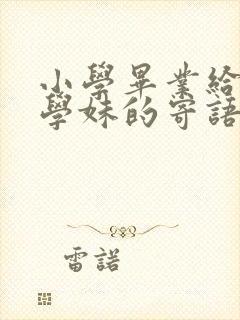 小學畢業給
學妹的寄語
雷諾